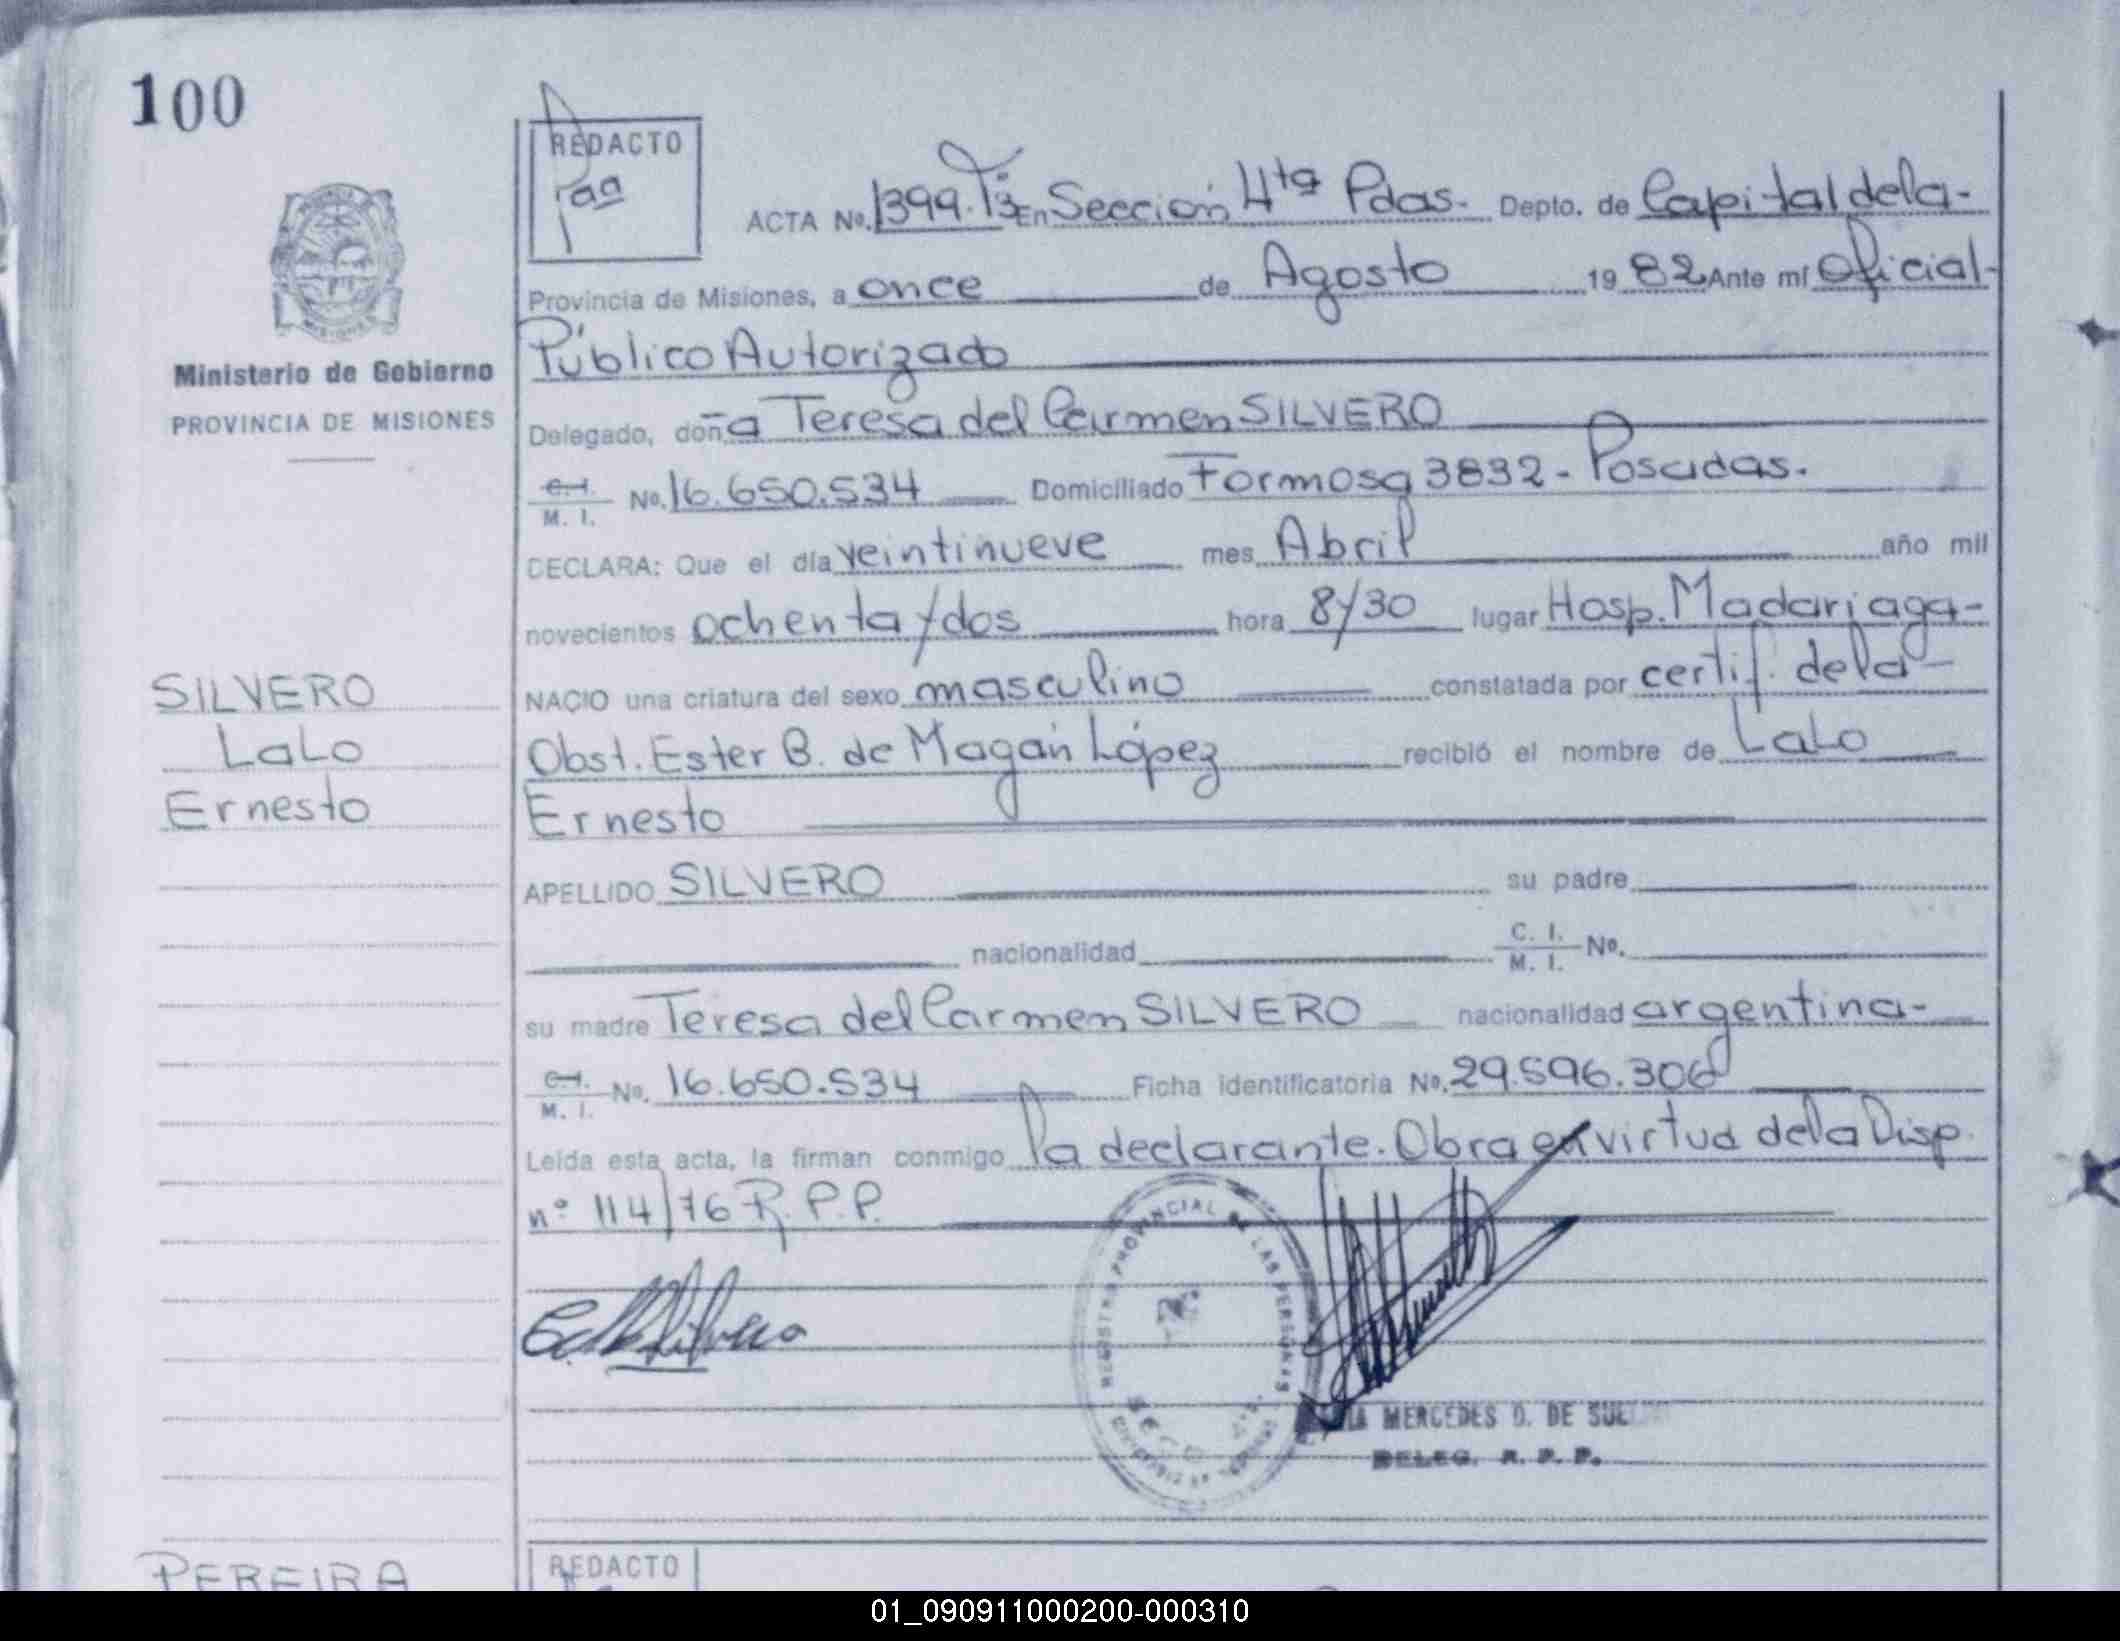 100
REDACTO
ACTA No. 1399. T3 En Sección 4ta Pdas. Depto. de Capital de la-
Provincia de Misiones, a once de Agosto 1982 Ante mí Oficial-
Público Autorizado
Ministerio de Gobierno
PROVINCIA DE MISIONES
Delegado, doña Teresa del Carmen SILVERO
C.I. M. I. No. 16.650.534 Domiciliado Formosa 3832- Posadas.
DECLARA: Que el día veintinueve mes Abril año mil
novecientos ochenta y dos hora 8y30 lugar Hosp. Madariaga-
SILVERO
LaLo
Ernesto
NACIO una criatura del sexo masculino constatada por certif. de la-
Obst. Ester B. de Magán López recibió el nombre de LaLo
Ernesto
APELLIDO SILVERO su padre
nacionalidad C. I. M. I. No.
su madre Teresa del Carmen SILVERO nacionalidad argentina-
C.I. M. I. No. 16.650.534 Ficha identificatoria No. 29.596.306
Leída esta acta, la firman conmigo la declarante. Obra en virtud de la Disp.
nº 114/76 R.P.P.
REGISTRO PROVINCIAL DE LAS PERSONAS
MERCEDES D. DE
DELEG. R. P. P.
PEREIRA
REDACTO
01_090911000200-000310